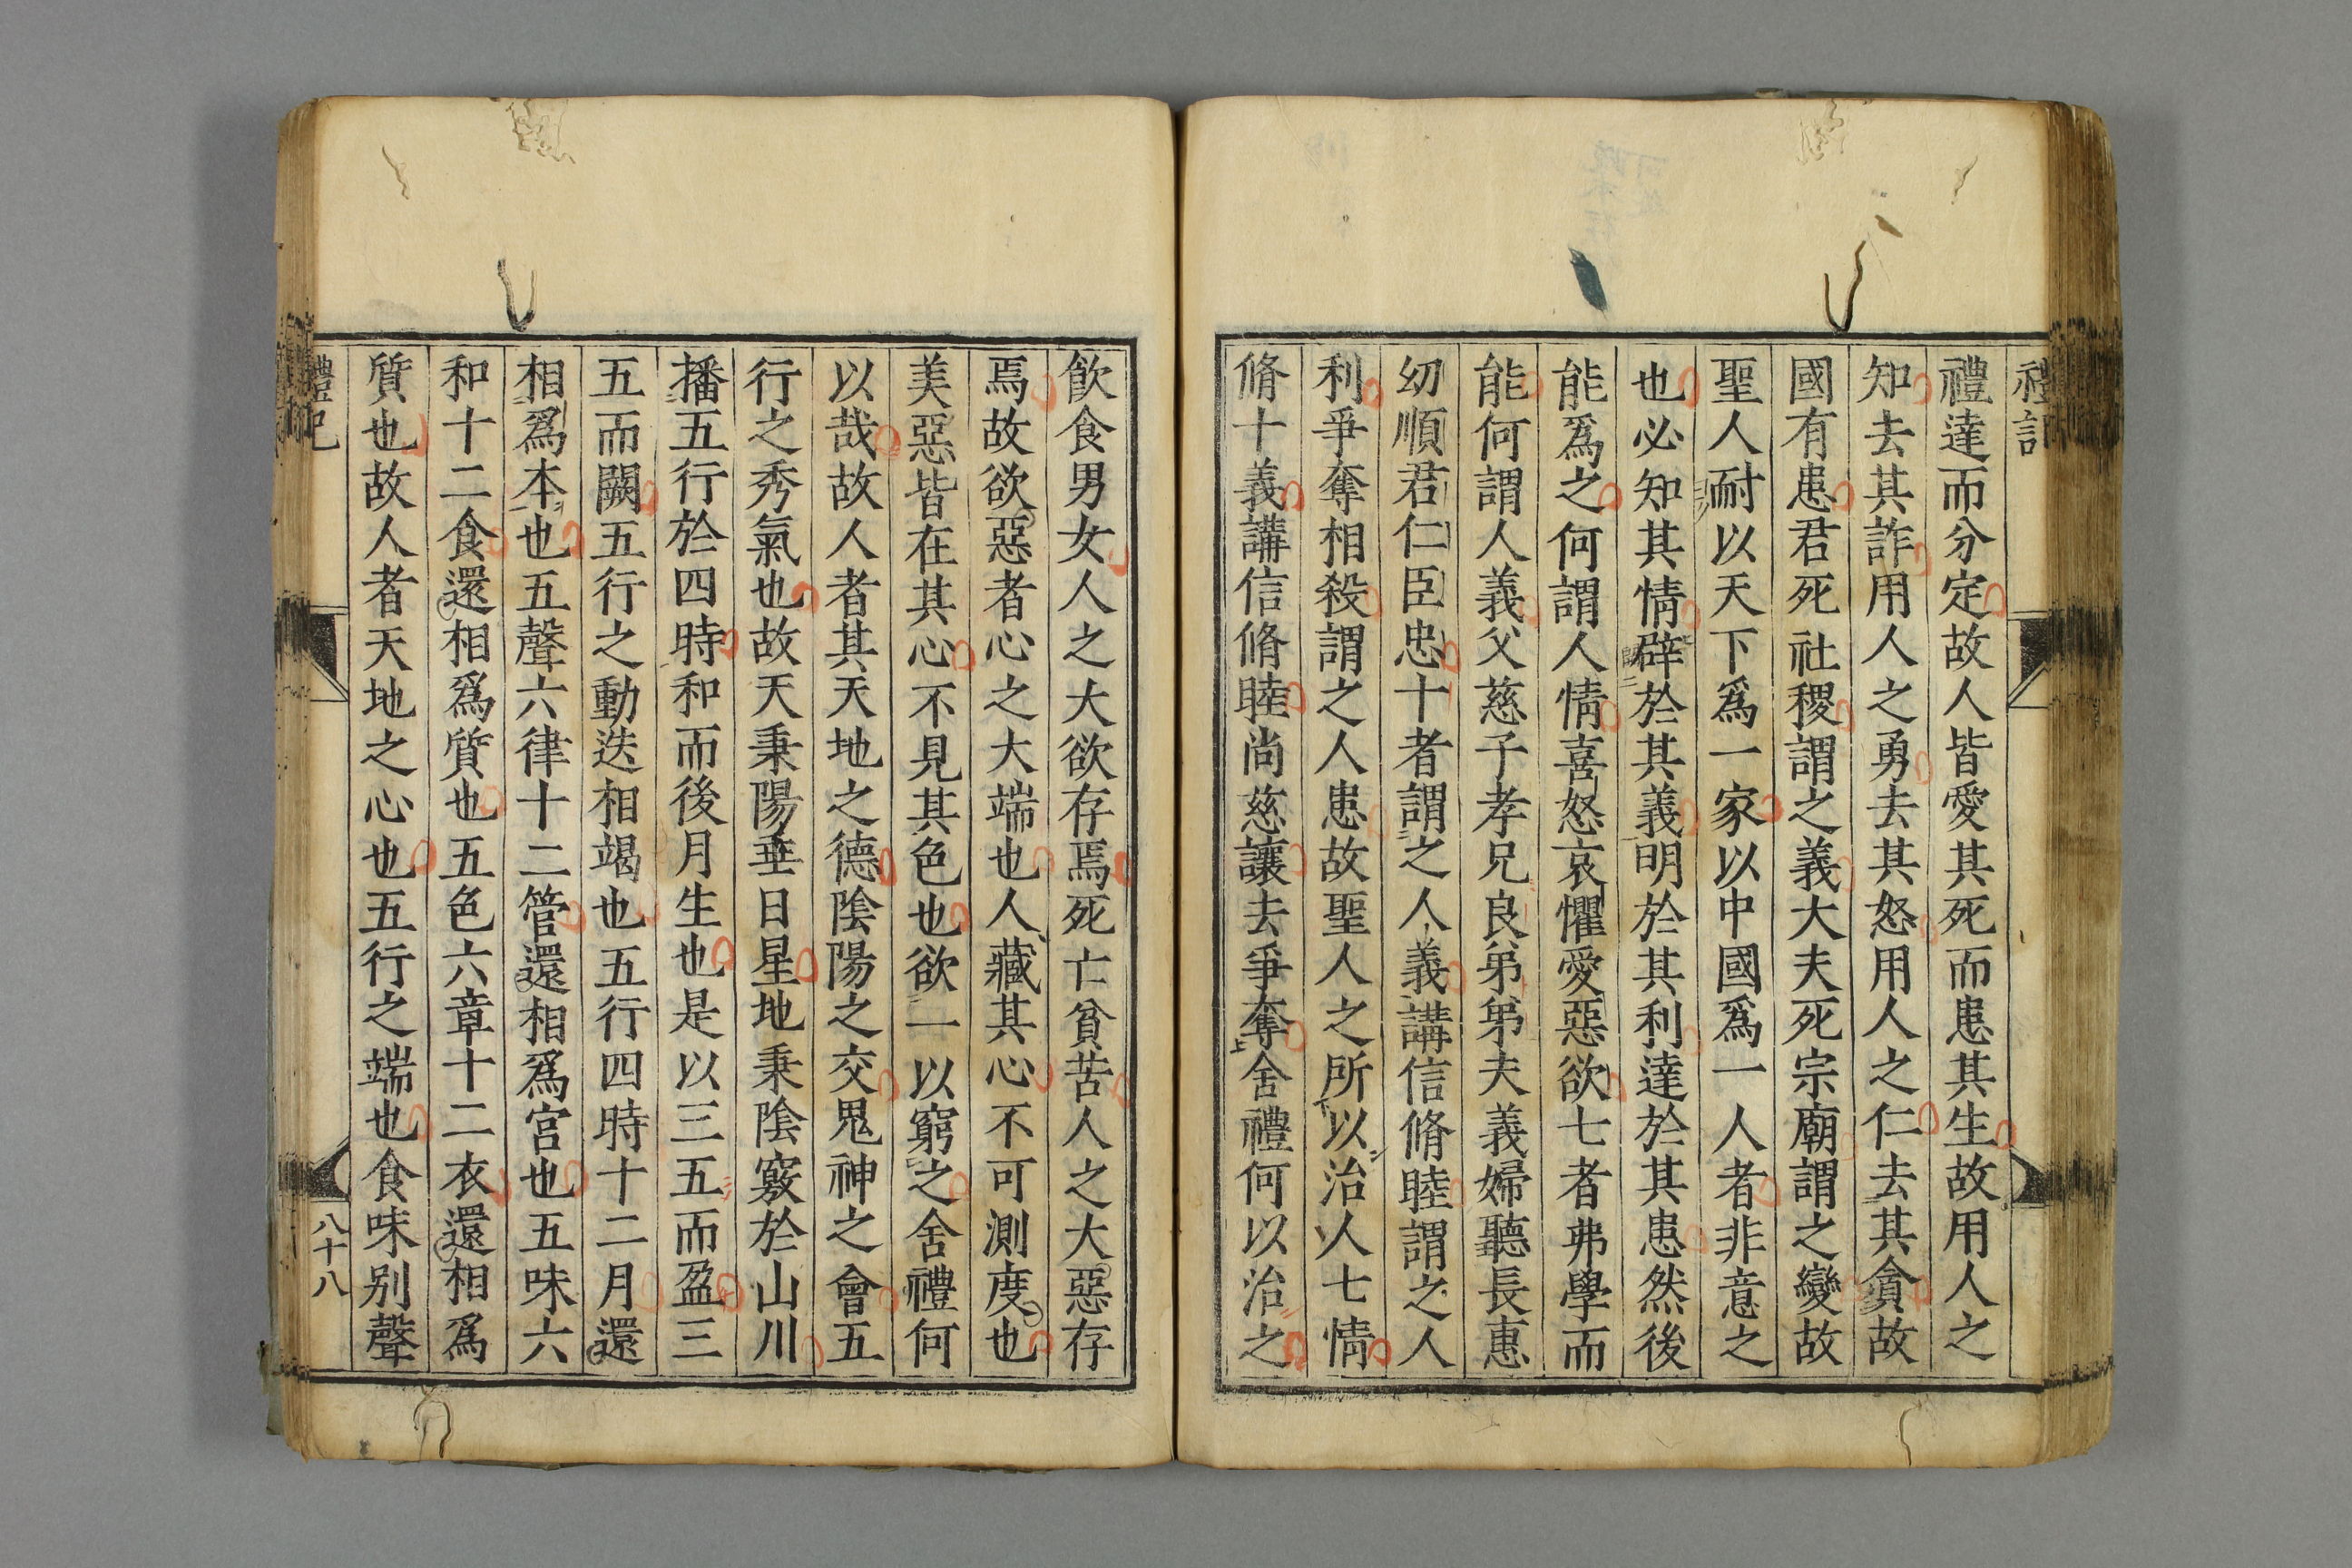 禮記
禮達而分定故人皆愛其死而患其生故用人之
知去其詐用人之勇去其怒用人之仁去其貪故
國有患君死社稷謂之義大夫死宗廟謂之變故
聖人耐以天下爲一家以中國爲一人者非意之
也必知其情辟於其義明於其利達於其患然後
能爲之何謂人情喜怒哀懼愛惡欲七者弗學而
能何謂人義父慈子孝兄良弟弟夫義婦聽長惠
幼順君仁臣忠十者謂之人義講信脩睦謂之人
利爭奪相殺謂之人患故聖人之所以治人七情
脩十義講信脩睦尚慈讓去爭奪舍禮何以治之
飮食男女人之大欲存焉死亡貧苦人之大惡存
焉故欲惡者心之大端也人藏其心不可測度也
美惡皆在其心不見其色也欲一以窮之舍禮何
以哉故人者其天地之德陰陽之交鬼神之會五
行之秀氣也故天秉陽垂日星地秉陰竅於山川
播五行於四時和而後月生也是以三五而盈三
五而闕五行之動迭相竭也五行四時十二月還
相爲本也五聲六律十二管還相爲宮也五味六
和十二食還相爲質也五色六章十二衣還相爲
質也故人者天地之心也五行之端也食味別聲
禮記
八十八